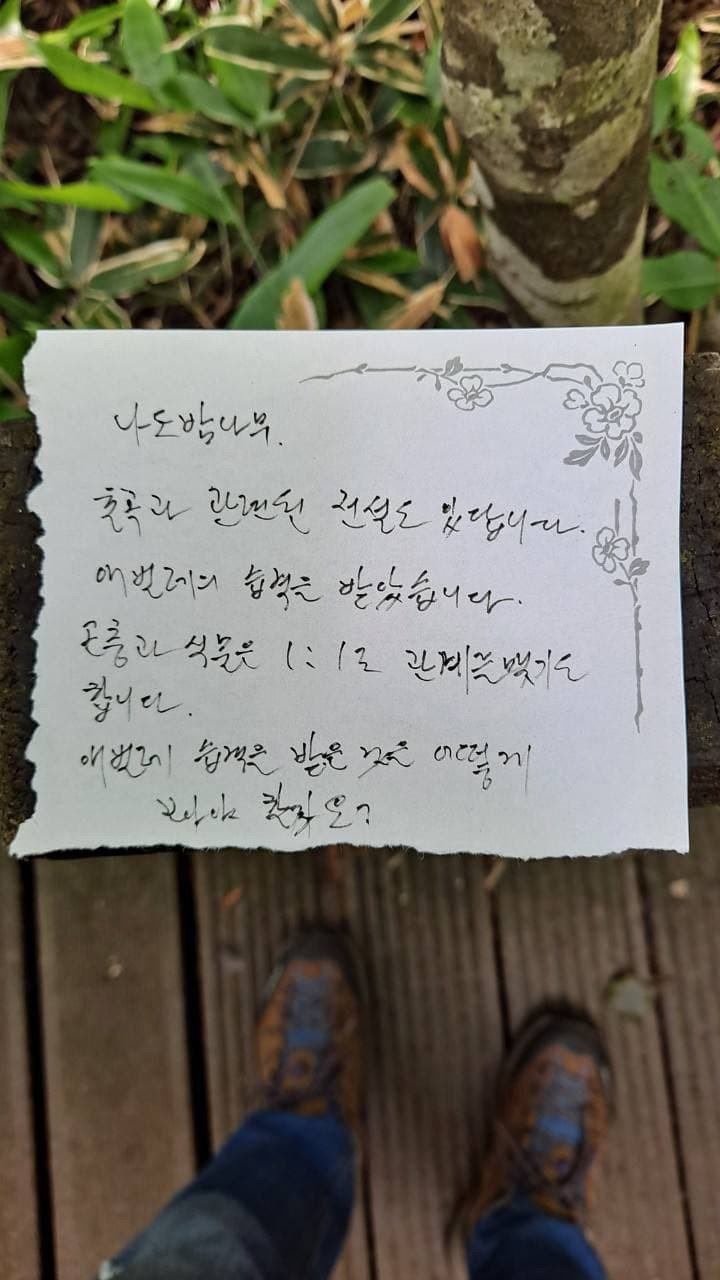 나도밤나무.
율곡과 관련된 전설도 있답니다.
애벌레의 습격을 받았습니다.
곤충과 식물은 1:1로 관계를 맺기도
합니다.
애벌레 습격을 받은 것은 어떻게
보아야 할까요?